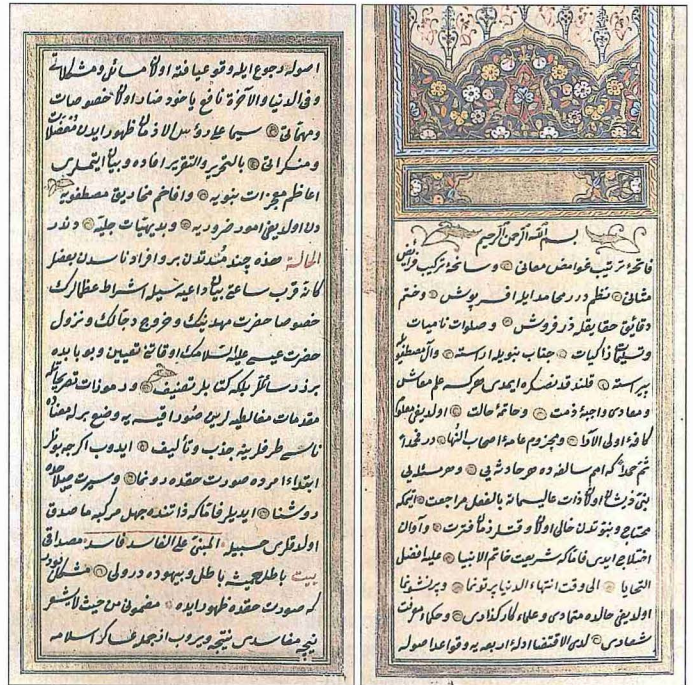 بسم الله الرحمن الرحيم
فاتحهٔ ترتيب غوامض معانى و سانحهٔ تركيب فرايض
مثانى نظم درر محامد ايله افسر پوش و ختم
دقايق حقايقله ذر فروش و صلوات ناميات
وتسليمات ذاكيات جناب نبويله اراسته وآل مصطفويله
پيراسته قلند قدنصكره ايمدى هركسه علم معاش
ومعادى واجبهٔ ذمت وحاقهٔ حالت اولديغى معلوم
كافهٔ اولى الآدا ومجزوم عامهٔ اصحاب النها در
ثم كه امم سالفه ده هر حادثه يى وهر مسئله يى
نبئ ذيشان اولان ذات عاليسانه بالفعل مراجعت
محتاج ونبوتدن خالى اولان وقتلر زمان فترت واوان
اختلاج ايدى فاما كه شريعت خاتم الانبيا عليه افضل
التحايا الى وقت انتهاء الدنيا پرتونما وپرنشو نما
اولديغى حالده متمادى وعلماء كاركذادى وحكماء معرفت
شعادى لدى الاقتضا ادلهٔ اربعه يه وقواعد اصوله
اصوله رجوع ايله وقوعيافته اولان مسائل ومشكلاتى
وفى الدنيا والآخرة نافع ياخود ضار اولان خصوصات
ومهماتى سيما على رؤس الازمان ظهور ايدن معضلات
ومنكراتى بالتحرير والتقرير افاده وبيان ايتملرى
اعاظم معجزات نبويه وافاخم مخاديق مصطفويه
دن اولديغى امور ضروريه وبديهيات جليه در
الحالة هذه چند مدتدن برو افراد ناسدن بعضلر
كانه قرب ساعتى بيان داعيه سيله اشراط عظادن
خصوصا حضرت مهدينك وخروج دجالك ونزول
حضرت عيسى عليه السلامك اوقاتنى تعيين وبوبابده
بر رساله لر بلكه كتابلر تصنيف و رموزات
مقدمات مغالطيه لرين صور اقيسه يه وضع برله
ناسى طرفلرينه جذب وتأليف ايدوب اكرچه بونلر
ابتداء امرده صورت حقده رونما وسيرت
روشنا ايديلر فاما كه ذاتنده جهل مركبه ماصدق
اولدقلرى حسبيله المبنى على الفاسد فاسد مصداقى
بيت باطل هميشه باطل و بيهوده درولى مشكل
كه صورت حقده ظهور ايده مضمونى من حيث لا يشعر
نتيجه مفاسدى نتيجه ويروب از جمله عساكر اسلامه